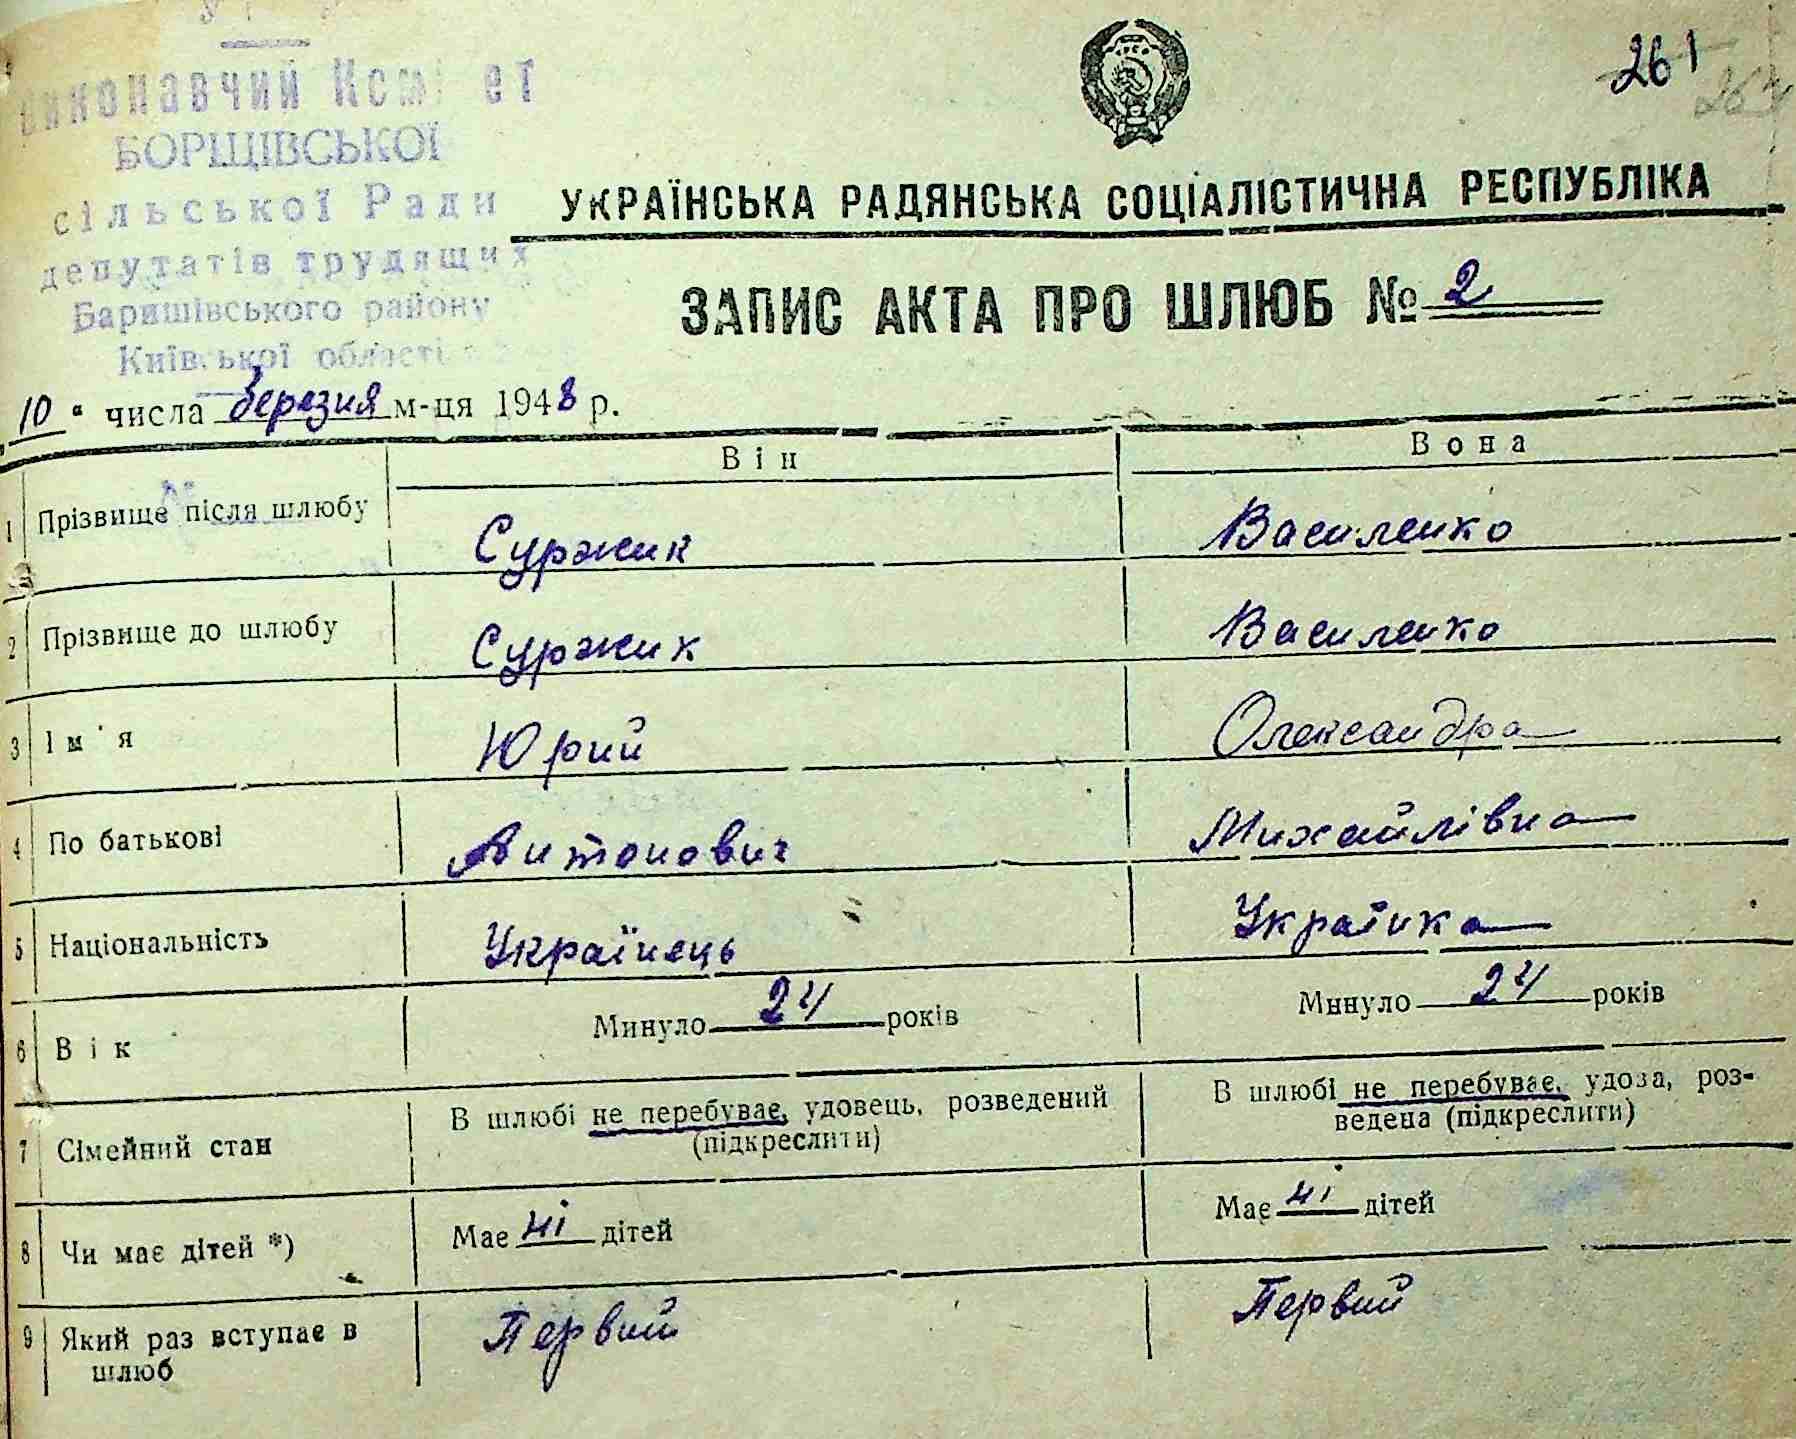 Виконавчий Комітет
БОРЩІВСЬКОЇ
сільської Ради
депутатів трудящих
Баришівського району
Київської області
261
УКРАЇНСЬКА РАДЯНСЬКА СОЦІАЛІСТИЧНА РЕСПУБЛІКА
ЗАПИС АКТА ПРО ШЛЮБ № 2
10 " числа березня м-ця 1948 р.
Він Вона
1 Прізвище після шлюбу Суржик Василенко
2 Прізвище до шлюбу Суржик Василенко
3 Ім'я Юрий Олександра
4 По батькові Антонович Михайлівна
5 Національність Українець Українка
6 Вік Минуло 24 років Минуло 24 років
7 Сімейний стан В шлюбі не перебуває, удовець, розведений (підкреслити) В шлюбі не перебуває, удова, роз-
ведена (підкреслити)
8 Чи має дітей *) Має ні дітей Має ні дітей
9 Який раз вступає в Первий Первий
шлюб